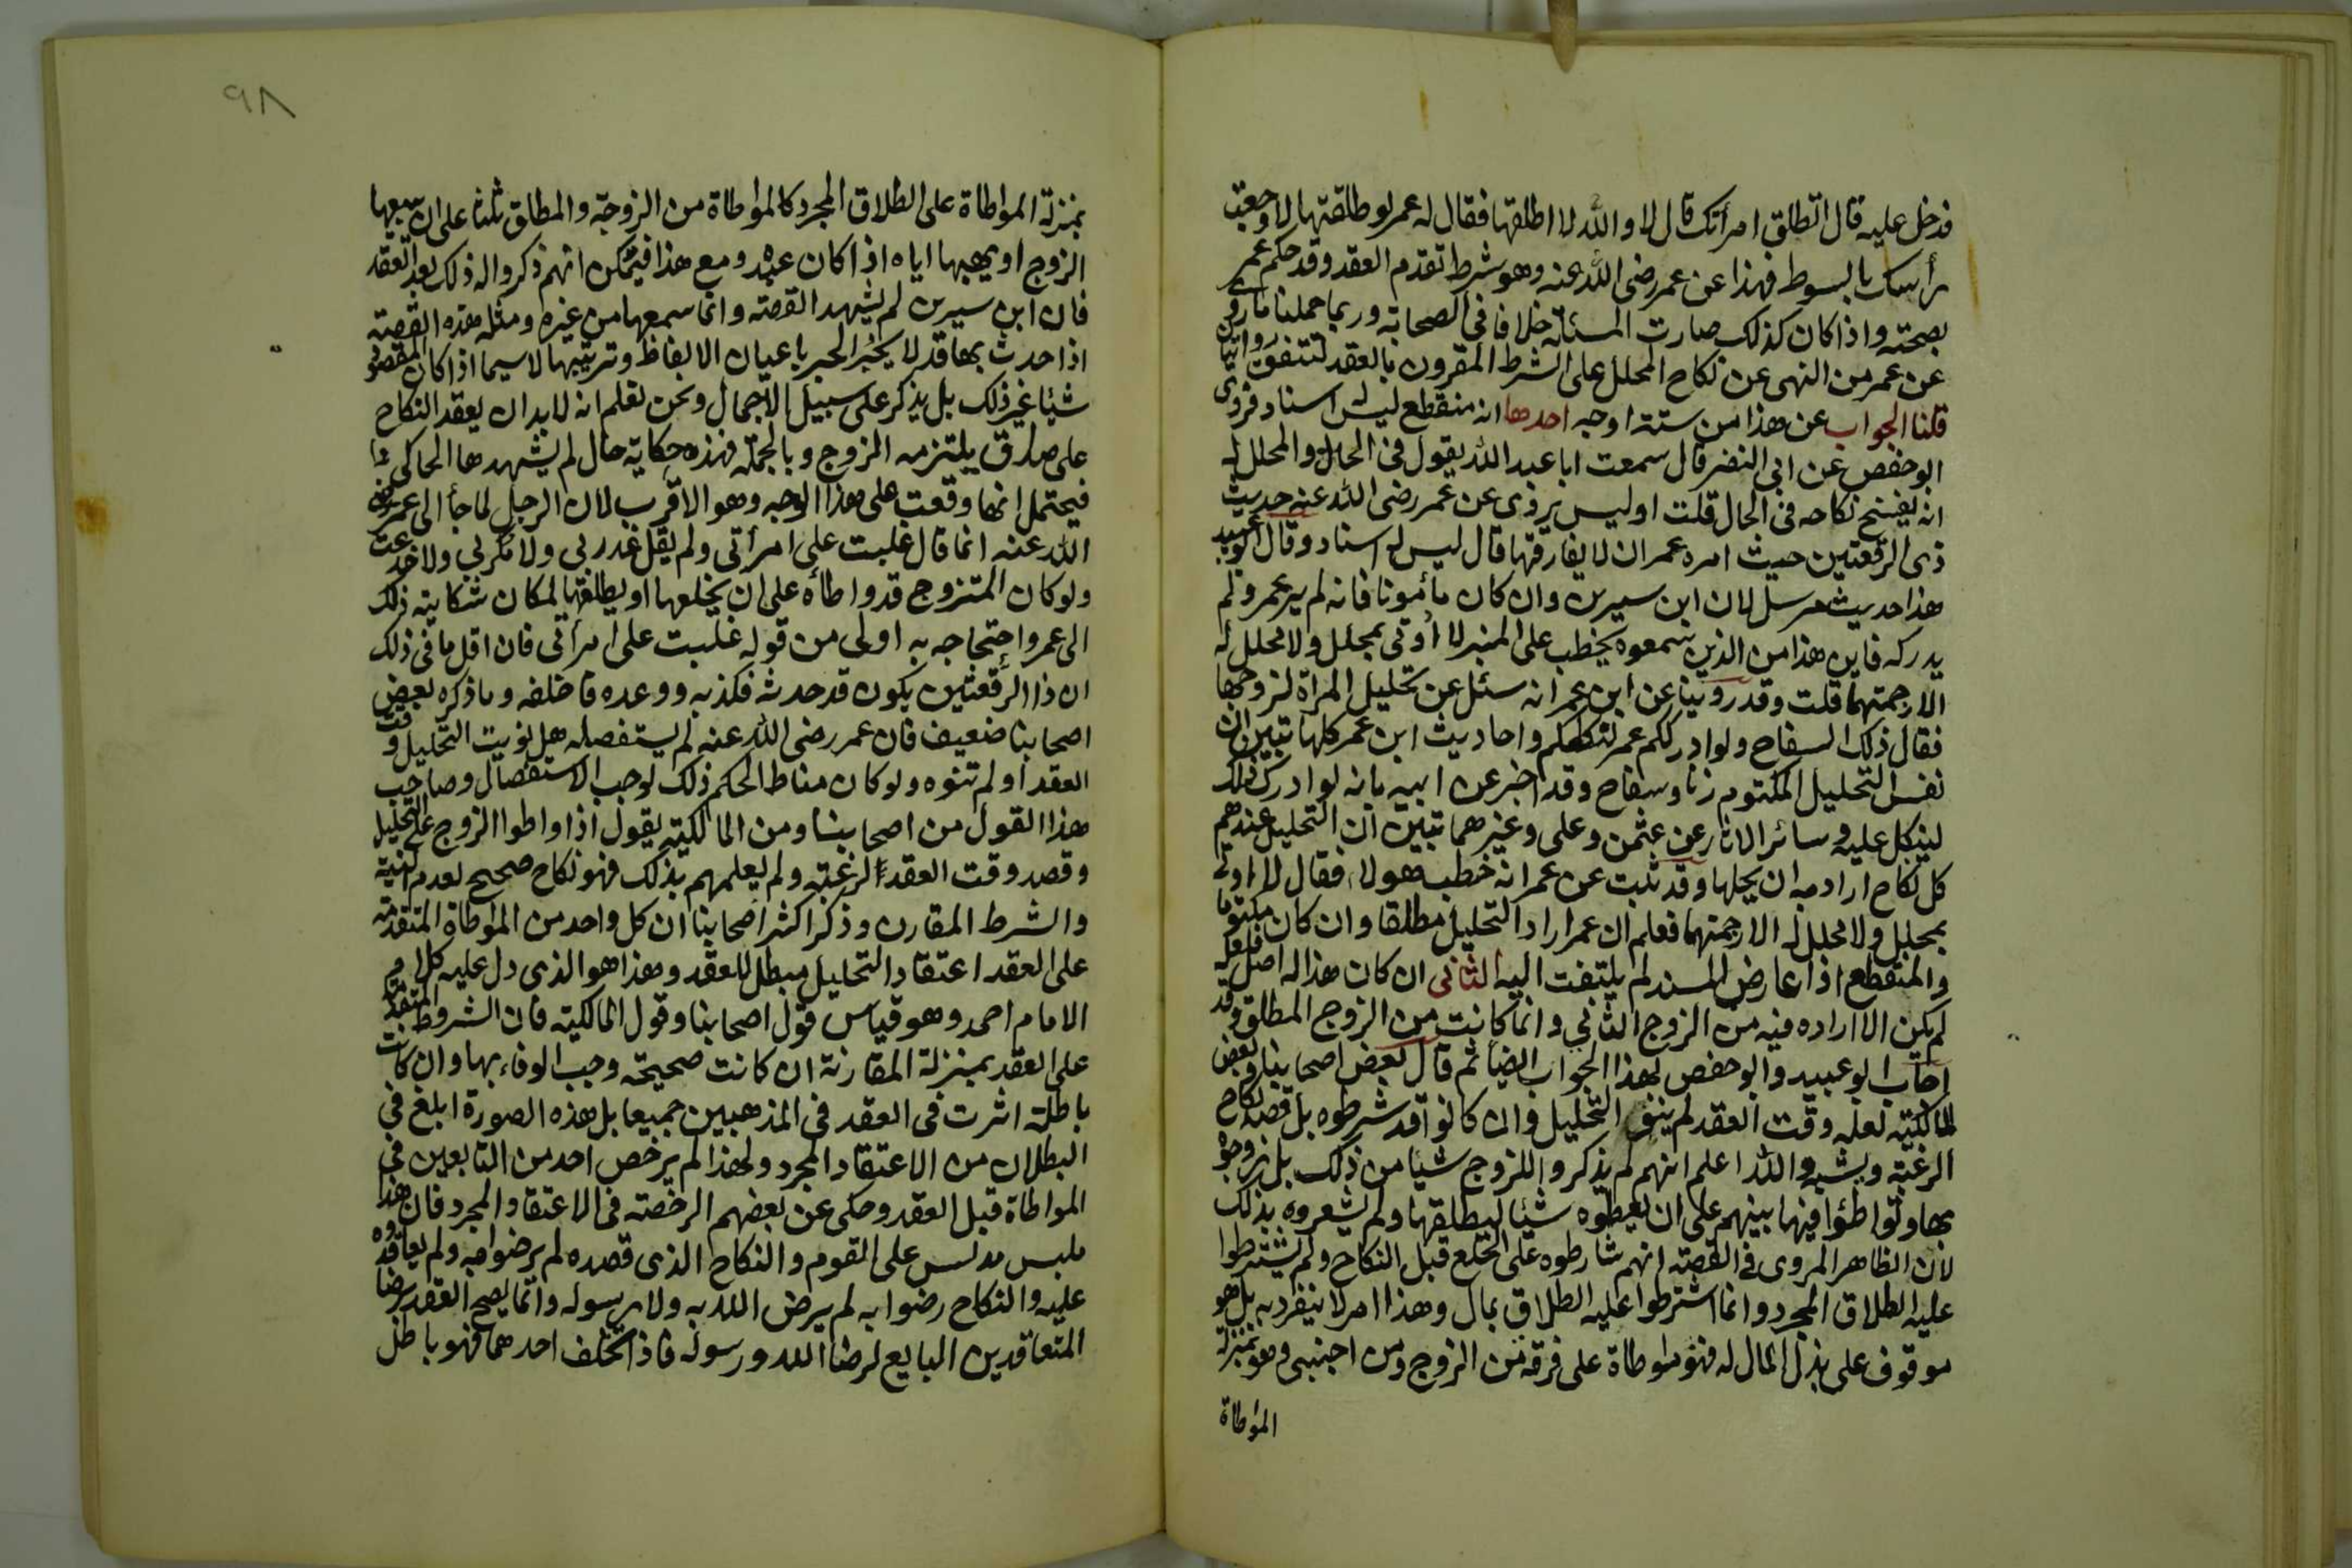 فدخل عليه قال اتطلق امرأتك قال لا والله لا اطلقها فقال له عمر لو طلقتها لاوجعت
رأسك بالسوط فهذا عن عمر رضى الله عنه وهو شرط تقدم العقد وقد حكم عمر
بصحته واذا كان كذلك صارت المسئلة خلافا فى الصحابة وربما حملنا ما روى
عن عمر من النهى عن نكاح المحلل على الشرط المقرون بالعقد لتتفق روايتا
قلنا الجواب عن هذا من ستة اوجه احدها انه منقطع ليس له اسناد فروى
ابو حفص عن ابى النضر قال سمعت ابا عبد الله يقول فى المحل والمحلل له
انه يفسخ نكاحه فى الحال قلت اوليس يروى عن عمر رضى الله عنه حديث
ذى الرقعتين حيث امره عمر ان لا يفارقها قال ليس له اسناد وقال ابو عبيد
هذا حديث مرسل لان ابن سيرين وان كان مأمونا فانه لم ير عمر ولم
يدركه فاين هذا من الذين سمعوه يخطب على المنبر لا أوتى بمحلل ولا محلل له
الا رجمتهما قلت وقد روينا عن ابن عمر انه سئل عن تحليل المراة لزوجها
فقال ذلك السفاح ولو ادرككم عمر لنكلكم واحاديث ابن عمر كلها تبين ان
نفس التحليل المكتوم زنا وسفاح وقد اخبر عن ابيه بانه لو ادرك ذلك
لينكل عليه وسائر الاثار عن عثمن وعلى وغيرهما تبين ان التحليل عندهم
كل نكاح اراد به ان يحلها وقد ثبت عن عمر انه خطب هولا، فقال لا اوتى
بمحلل ولا محلل له الا رجمتهما فعلم ان عمر اراد التحليل مطلقا وان كان مكتوما
والمنقطع اذا عارض المسند لم يلتفت اليه الثانى ان كان هذا له اصل فلعله
لم يكن الا اراده فيه من الزوج الثاني وانما كانت من الزوج المطلق وقد
اجاب ابو عبيد وابو حفص بهذا الجواب ايضا ثم قال بعض اصحابنا وبعض
المالكية لعله وقت العقد لم ينو التحليل وان كانوا قد شرطوه بل قصد نكاح
الرغبة ويشبه والله اعلم انهم لم يذكروا للزوج شيا من ذلك بل زوجوه
بها وتواطئوا فيها بينهم على ان يعطوه شيئا ليطلقها ولم يشعروه بذلك
لان الظاهر المروى فى القصة انهم شارطوه على الخلع قبل النكاح ولم يشترطوا
عليه الطلاق المجرد وانما اشترطوا عليه الطلاق بمال وهذا امر لا ينفرد به بل هو
موقوف على بذل المال له فهو مواطاة على فرقة من الزوج ومن اجنبى وهو بمنزلة
المواطاة
٩٨
بمنزلة المواطاة على الطلاق المجرد كالمواطاة من الزوجة والمطلق ثلثا على ان يبيعها
الزوج او يهبها اياه اذا كان عبده ومع هذا فيمكن انهم ذكروا له ذلك بعد العقد
فان ابن سيرين لم يشهد القصة وانما سمعها من غيره ومثل هذه القصة
اذا حدث بها قد لا يخبر المخبر باعيان الالفاظ وترتيبها لا سيما اذا كان المقصود
شيئا غير ذلك بل يذكر على سبيل الاجمال ونحن نعلم انه لا بد ان يعقد النكاح
على صداق يلتزمه الزوج وبالجملة فهذه حكاية حال لم يشهدها الحاكى لها
فيحتمل انها وقعت على هذا الوجه وهو الاقرب لان الرجل لما جأ الى عمر رضى
الله عنه انما قال غلبت على امرأتى ولم يقل غدر بى ولا مكر بي ولا خدعت
ولو كان المتزوج قد واطأه على ان يخلعها او يطلقها لمكان شكايته ذلك
الى عمر واحتجاجه به اولى من قوله غلبت على امراتى فان اقل ما فى ذلك
ان ذا الرقعتين يكون قد حدثه فكذبه ووعده فاخلفه وما ذكره بعض
اصحابنا ضعيف فان عمر رضى الله عنه لم يستفصله هل نويت التحليل وقت
العقد او لم تنوه ولو كان مناط الحكم ذلك لوجب الاستفصال وصاحب
هذا القول من اصحابنا ومن المالكية يقول اذا واطوا الزوج على التحليل
وقصد وقت العقد الرغبة ولم يعلمهم بذلك فهو نكاح صحيح لعدم النية
والشرط المقارن وذكر اكثر اصحابنا ان كل واحد من المواطاة المتقدمة
على العقد اعتقاد التحليل مبطل للعقد وهذا هو الذى دل عليه كلام
الامام احمد وهو قياس قول اصحابنا وقول المالكية فان الشروط المتقدمة
على العقد بمنزلة المقارنة ان كانت صحيحة وجب الوفاء بها وان كانت
باطلة اثرت فى العقد فى المذهبين جميعا بل هذه الصورة ابلغ فى
البطلان من الاعتقاد المجرد ولهذا لم يرخص احد من التابعين فى
المواطاة قبل العقد وحكى عن بعضهم الرخصة فى الاعتقاد المجرد فان هذا
ملبس مدلس على القوم والنكاح الذى قصده لم يرضوا به ولم يعاقدوه
عليه والنكاح رضوا به لم يرض الله به ولا رسوله وانما يصح العقد برضا
المتعاقدين البايع لرضا الله ورسوله فاذا تخلف احدهما فهو باطل